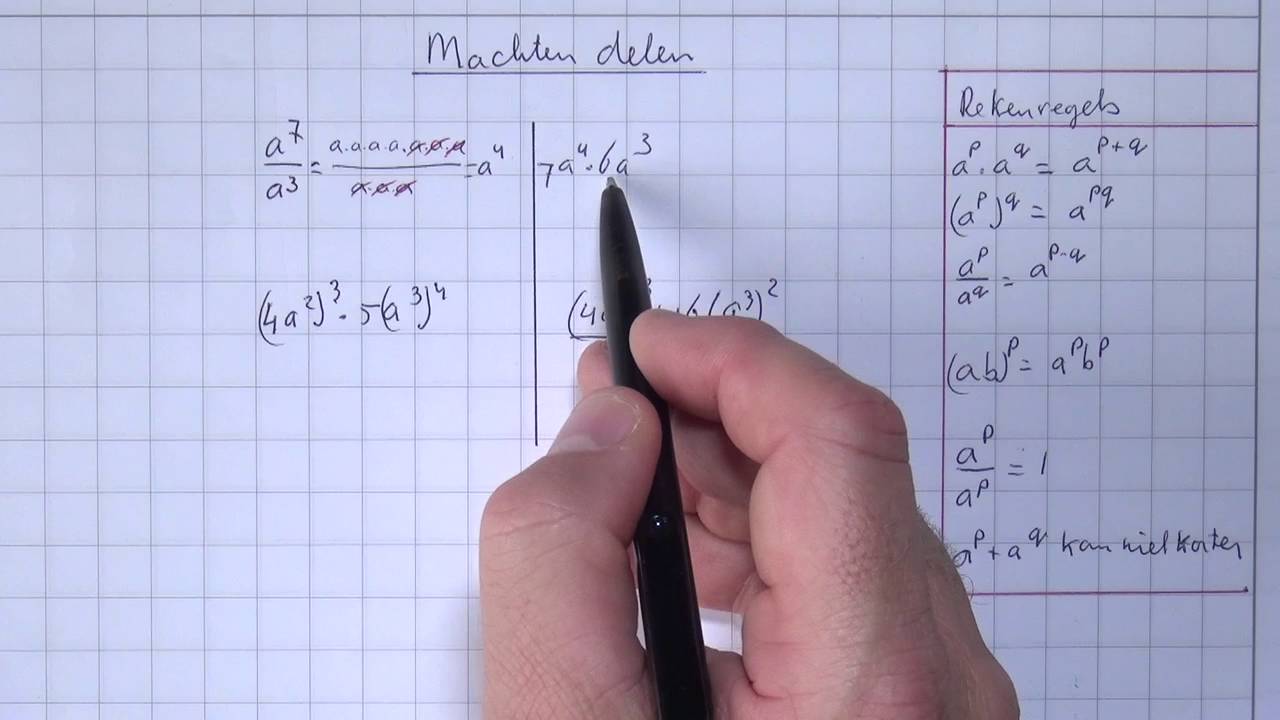 Machten delen
a⁷/a³ = a.a.a.a.a.a.a/a.a.a = a⁴
7a⁴·6a³
(4a²)³ · 5(a³)⁴
(a³)²
Rekenregels
aᵖ · a^q = a^(p+q)
(aᵖ)^q = a^(pq)
aᵖ/a^q = a^(p-q)
(ab)ᵖ = aᵖbᵖ
aᵖ/aᵖ = 1
aᵖ + a^q kan niet korter